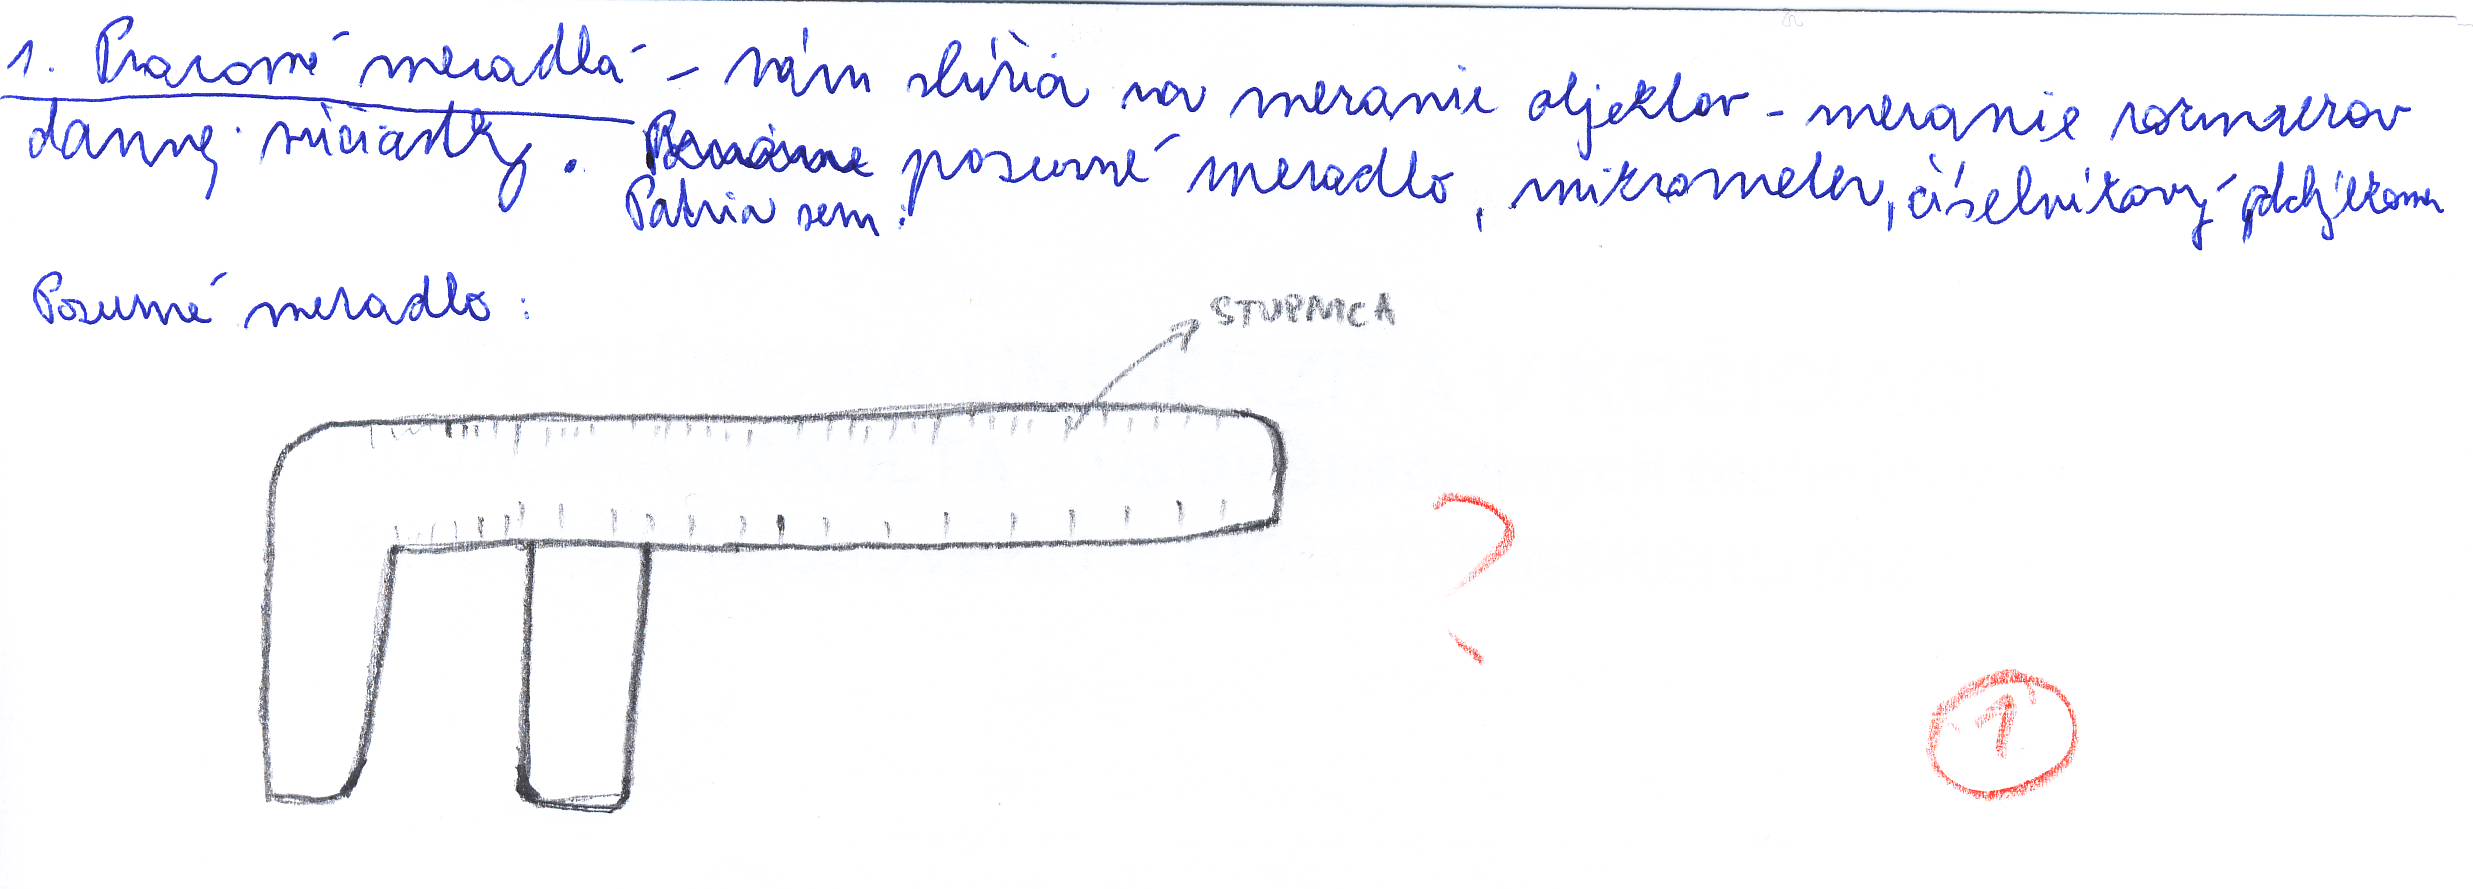 1. Pracovné meradlá - nám slúžia na meranie objektov - meranie rozmerov
dannej súčiastky. posuvné meradlo, mikrometer, číselníkový odchýlkomer
Patria sem:
Posuvné meradlo:
STUPNICA
?
1